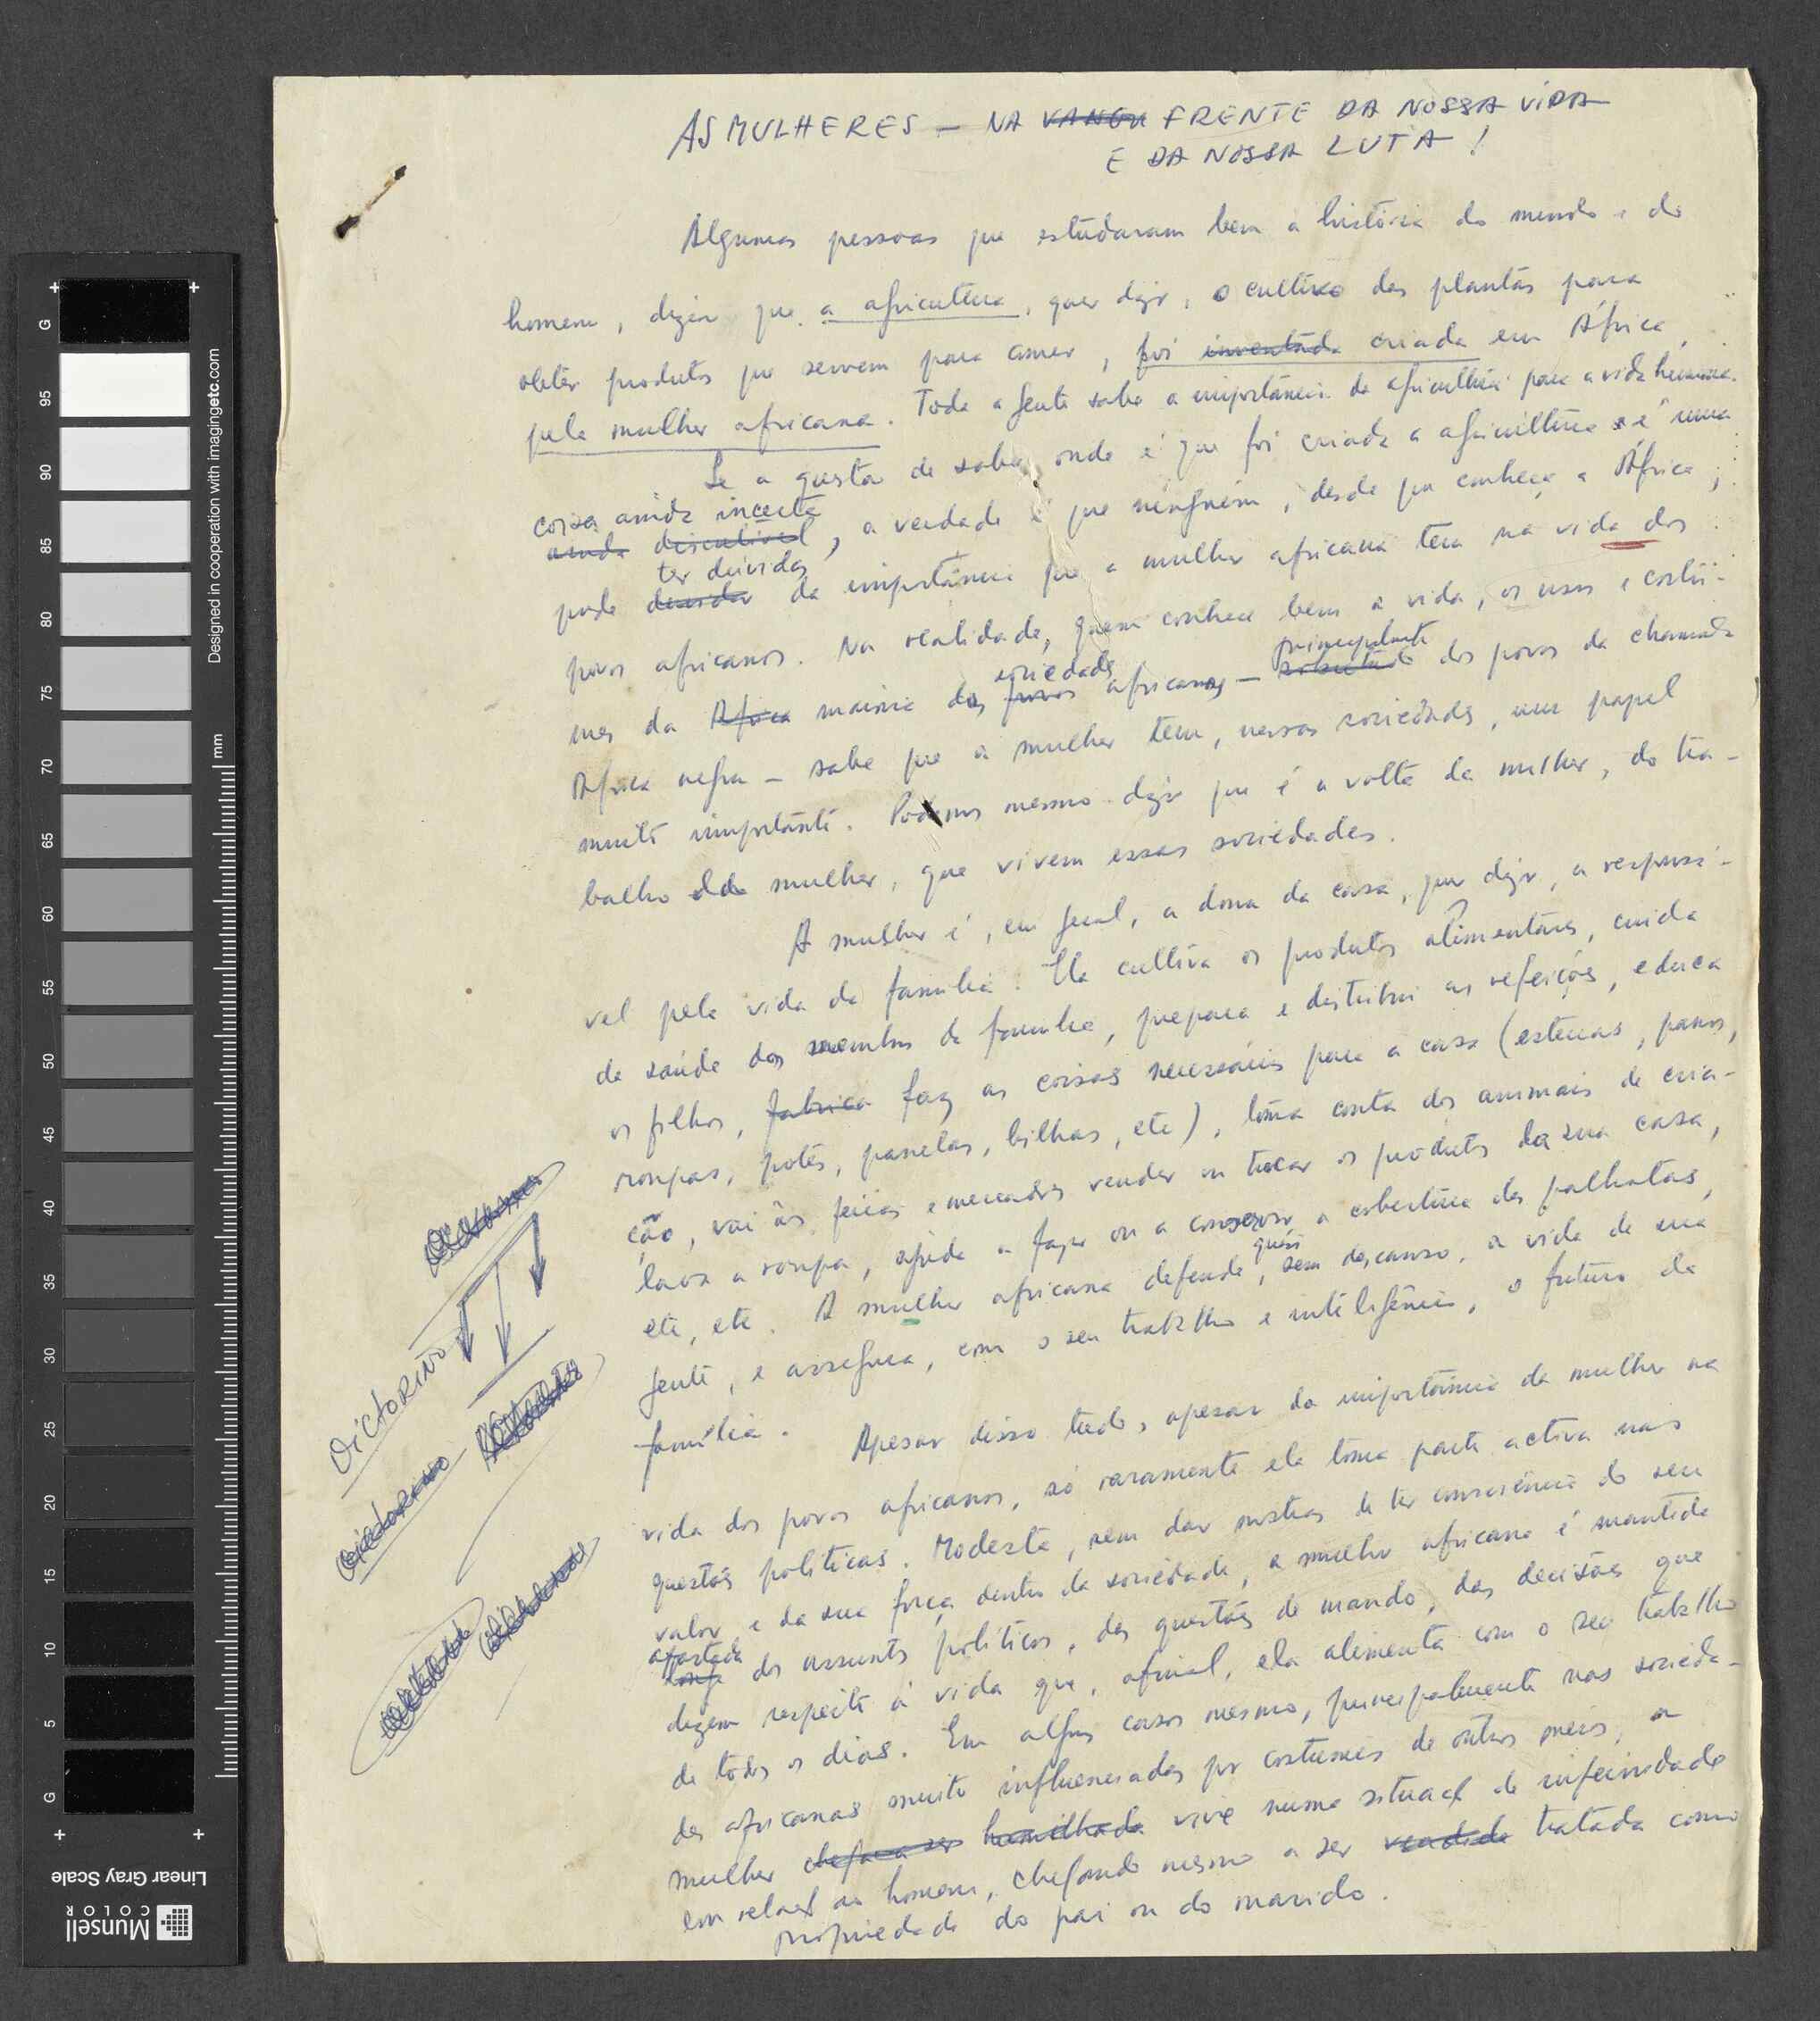 AS MULHERES — NA VANGU FRENTE DA NOSSA VIDA
E DA NOSSA LUTA !
Algumas pessoas que estudaram bem a história do mundo e do
homem, dizem que a agricultura, quer dizer, o cultivo das plantas para
obter produtos que servem para comer, foi inventada criada em África,
pela mulher africana. Toda a gente sabe a importância da agricultura para a vida humana.
Se a questão de saber onde é que foi criada a agricultura é uma
coisa ainda incerta
ainda discutível, a verdade é que ninguém, desde que conheça a África,
ter dúvidas
pode duvidar da importância que a mulher africana tem na vida dos
povos africanos. Na realidade, quem conhece bem a vida, os usos e costu-
sociedades principalmente
mes da África maioria das povos africanas — sobretudo dos povos da chamada
África negra — sabe que a mulher tem, nessas sociedades, um papel
muito importante. Podemos mesmo dizer que é a volta da mulher, do tra-
balho da mulher, que vivem essas sociedades.
A mulher é, em geral, a dona da casa, quer dizer, a responsá-
vel pela vida da família. Ela cultiva os produtos alimentares, cuida
da saúde dos membros da família, prepara e distribui as refeições, educa
os filhos, fabrica faz as coisas necessárias para a casa (esteiras, panos,
roupas, potes, panelas, bilhas, etc), toma conta dos animais de cria-
ção, vai às feiras e mercados vender ou trocar os produtos da sua casa,
lava a roupa, ajuda a fazer ou a conservar a cobertura das palhotas,
quasi
etc, etc. A mulher africana defende, sem descanso, a vida de sua
gente, e assegura, com o seu trabalho e inteligência, o futuro da
família.
Apesar disso tudo, apesar da importância da mulher na
vida dos povos africanos, só raramente ela toma parte activa nas
questões políticas. Modesta, sem dar mostras de ter consciência do seu
valor e da sua força dentro da sociedade, a mulher africana é mantida
afastada
longe dos assuntos políticos, das questões de mando, das decisões que
dizem respeito à vida que, afinal, ela alimenta com o seu trabalho
de todos os dias. Em alguns casos mesmo, principalmente nas socieda-
des africanas muito influenciadas por costumes de outros meios, a
mulher chega a ser humilhada vive numa situação de inferioridade
em relação ao homem, chegando mesmo a ser vendida tratada como
propriedade do pai ou do marido.
VictoRINO
VictoRINO
Designed in cooperation with imagingetc.com
mm
G
95
90
85
80
75
70
65
60
55
50
45
40
35
30
25
20
15
10
5
G
Linear Gray Scale
Munsell
COLOR